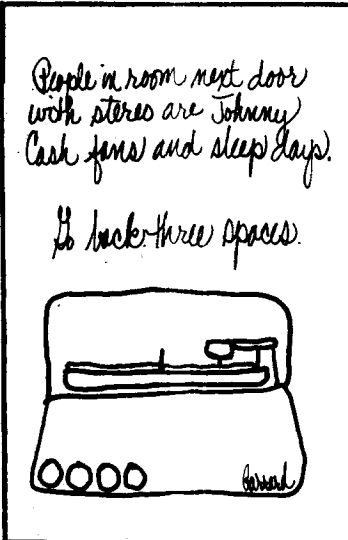 People in room next door
with stereo are Johnny
Cash fans and sleep days.
Go back three spaces.